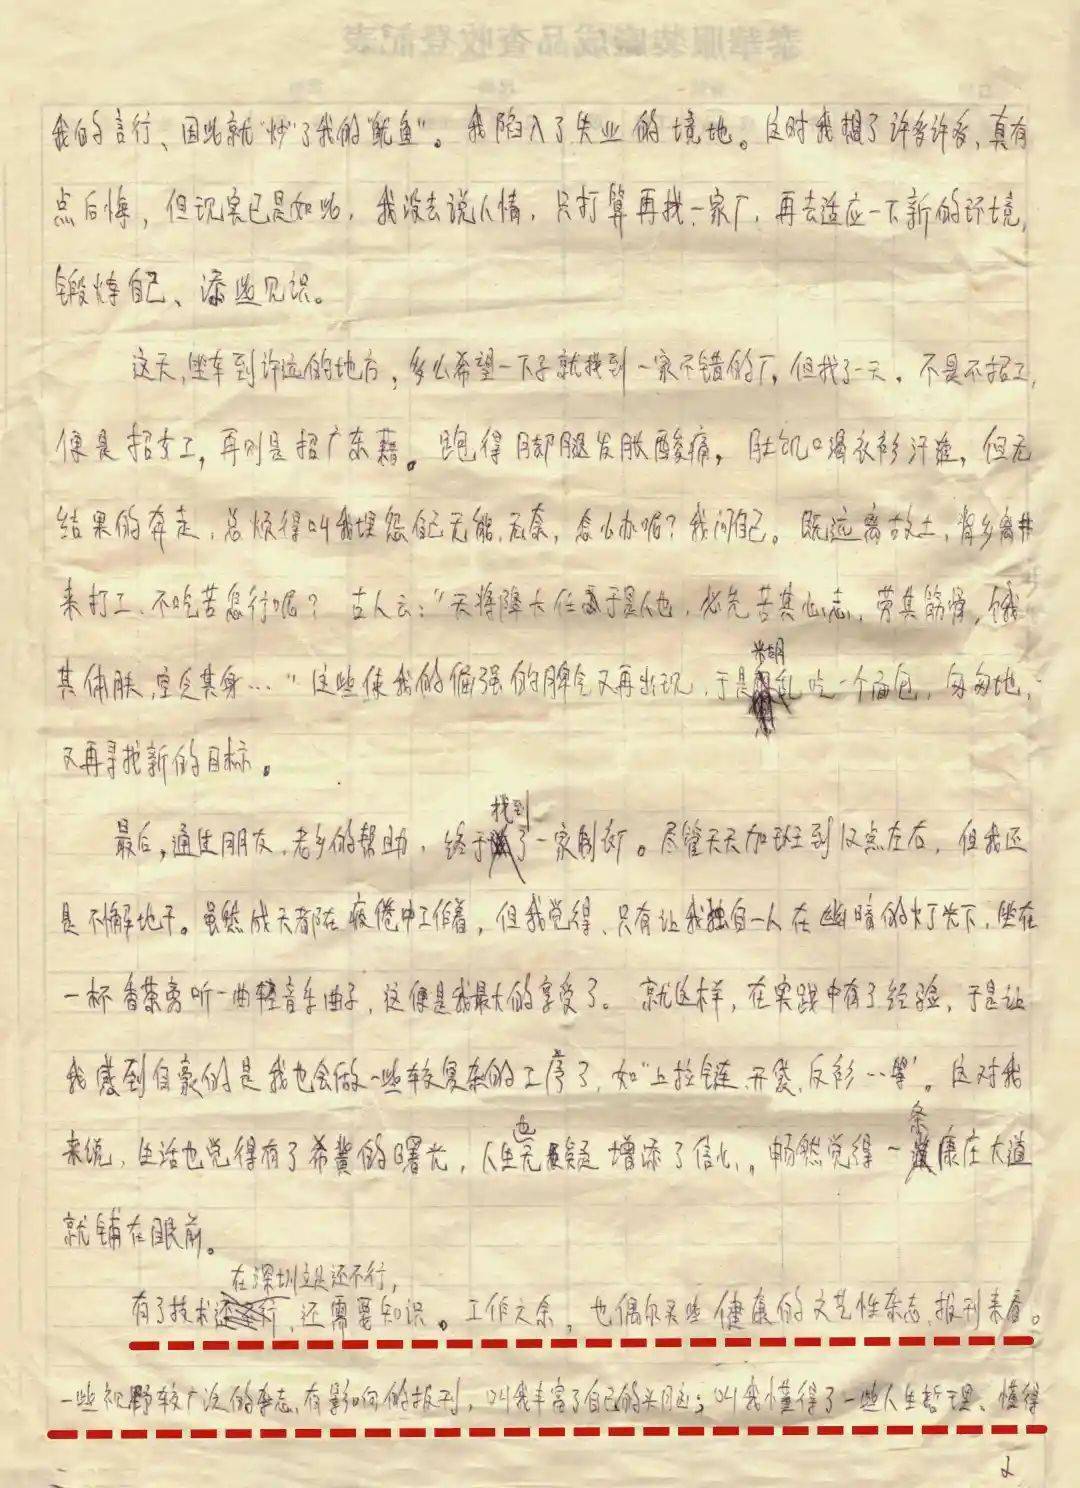 我的言行、因此就"炒"了我的"鱿鱼"。我陷入了失业的境地。这时我想了许多许多，真有
点后悔，但现实已是如此，我没去说人情，只打算再找一家厂，再去适应一下新的环境，
锻炼自己、添些见识。
这天，坐车到许远的地方，多么希望一下子就找到一家不错的厂，但找了一天，不是不招工，
便是招女工，再则是招广东籍。跑得脚腿发胀酸痛，肚饥口渴衣衫汗渣，但无
结果的奔走，总烦得叫我埋怨自己无能，无奈，怎么办呢？我问自己。既远离故土，背乡离井
来打工、不吃苦怎行呢？古人云："天将降大任于是人也，必先苦其心志，劳其筋骨，饿
其体肤，空乏其身…"这些使我的倔强的脾气又再出现，于是糊乱吃一个面包，匆匆地，
又再寻找新的目标。
最后，通过朋友、老乡的帮助，终于找到了一家制衣厂。尽管天天加班到12点左右，但我还
是不懈地干。虽然成天都在疲倦中工作着，但我觉得、只有让我独自一人在幽暗的灯光下，坐在
一杯香茶旁听一曲轻音乐曲子，这便是我最大的享受了。就这样，在实践中有了经验，于是让
我感到自豪的是我也会做一些较复杂的工序了，如"上拉链、开袋，反衫…等"。这对我
来说，生活也觉得有了希冀的曙光，人生也无疑增添了信心。畅然觉得一条康庄大道
就铺在眼前。
有了技术在深圳立足还不行，还需要知识。工作之余，也偶尔买些健康的文艺性杂志、报刊来看。
一些视野较广泛的杂志，有影响的报刊，叫我丰富了自己的头脑；叫我懂得了一些人生哲理、懂得
2